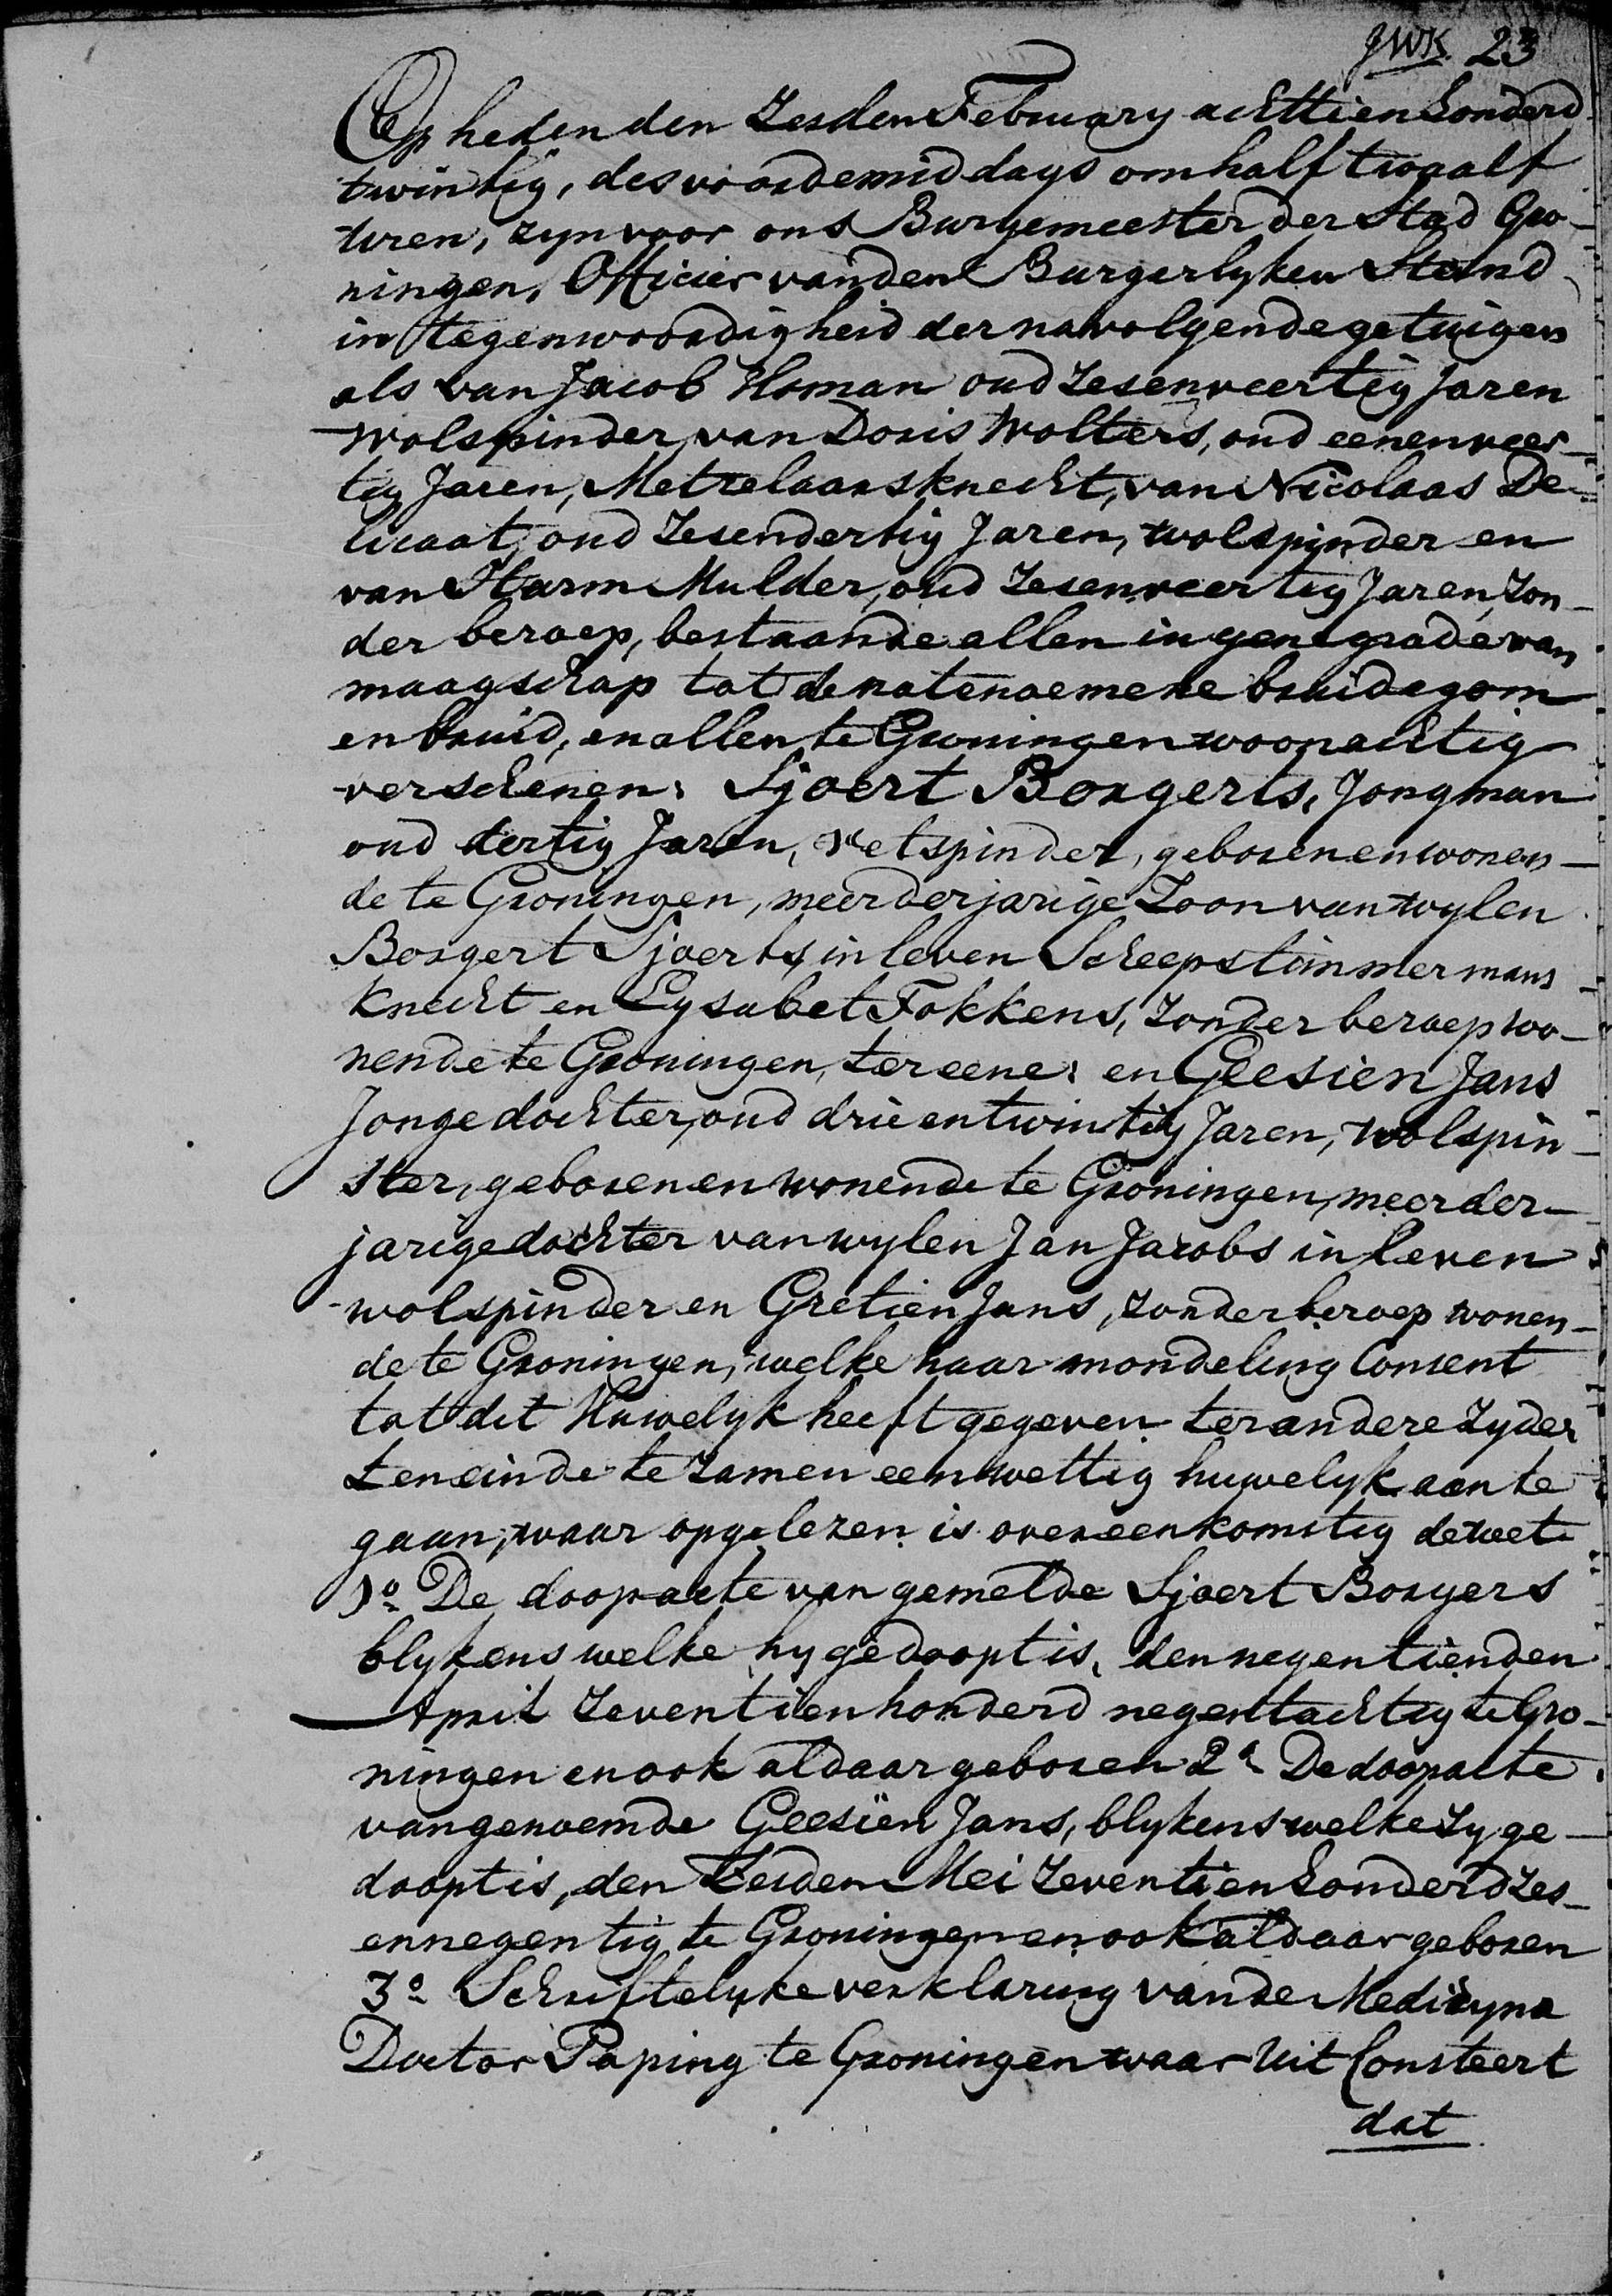 JWK 23
Op heden den Zesden February achttienhonderd
twintig, des voordemiddags om half twaalf
uren, zyn voor ons Burgemeester der Stad Gro-
ningen, Officier van den Burgerlyken Stand
in tegenwoordigheid der navolgende getuigen
als van Jacob Homan oud Zesenveertig Jaren
Wolspinder, van Doris Wolters, oud eenenveer-
tig Jaren, Metzelaarsknecht, van Nicolaas De-
licaat, oud Zesendertig Jaren, wolspinder en
van Harm Mulder, oud Zesenveertig Jaren, Zon-
der beroep, bestaande allen in gene grade van
maagschap tot de natenoemene bruidegom
en bruid, en allen te Groningen woonachtig
verschenen: Sjoert Borgerts, Jongman
oud dertig Jaren, Vetspinder, geboren en wonen-
de te Groningen, meerderjarige Zoon van wylen
Borgert Sjoerts, in leven Scheepstimmermans
knecht en Lysabet Fokkens, Zonder beroep wo-
nende te Groningen, ter eene: en Geesien Jans
Jonge dochter, oud drieentwintig Jaren, wolspin-
ster, geboren en wonende te Groningen, meerder-
jarige dochter van wylen Jan Jacobs in leven
wolspinder en Gretien Jans, zonder beroep wonen-
de te Groningen, welke haar mondeling Consent
tot dit Huwelyk heeft gegeven ter andere Zyde,
ten einde te zamen een wettig huwelyk aan te
gaan, waar opgelezen is overeenkomstig de wet:
1o De doopacte van gemelde Sjoert Borgers
blykens welke hy gedoopt is, den negentienden
April Zeventienhonderd negentachtig te Gro-
ningen en ook aldaar geboren 2o De doopacte
van genoemde Geesien Jans, blykens welke Zy ge-
doopt is, den Zesden Mei Zeventienhonderd Zes-
ennegentig te Groningen en ook aldaar geboren
3o Schriftelyke verklaring van de Medicyna
Doctor Paping te Groningen waar Uit Consteert
dat